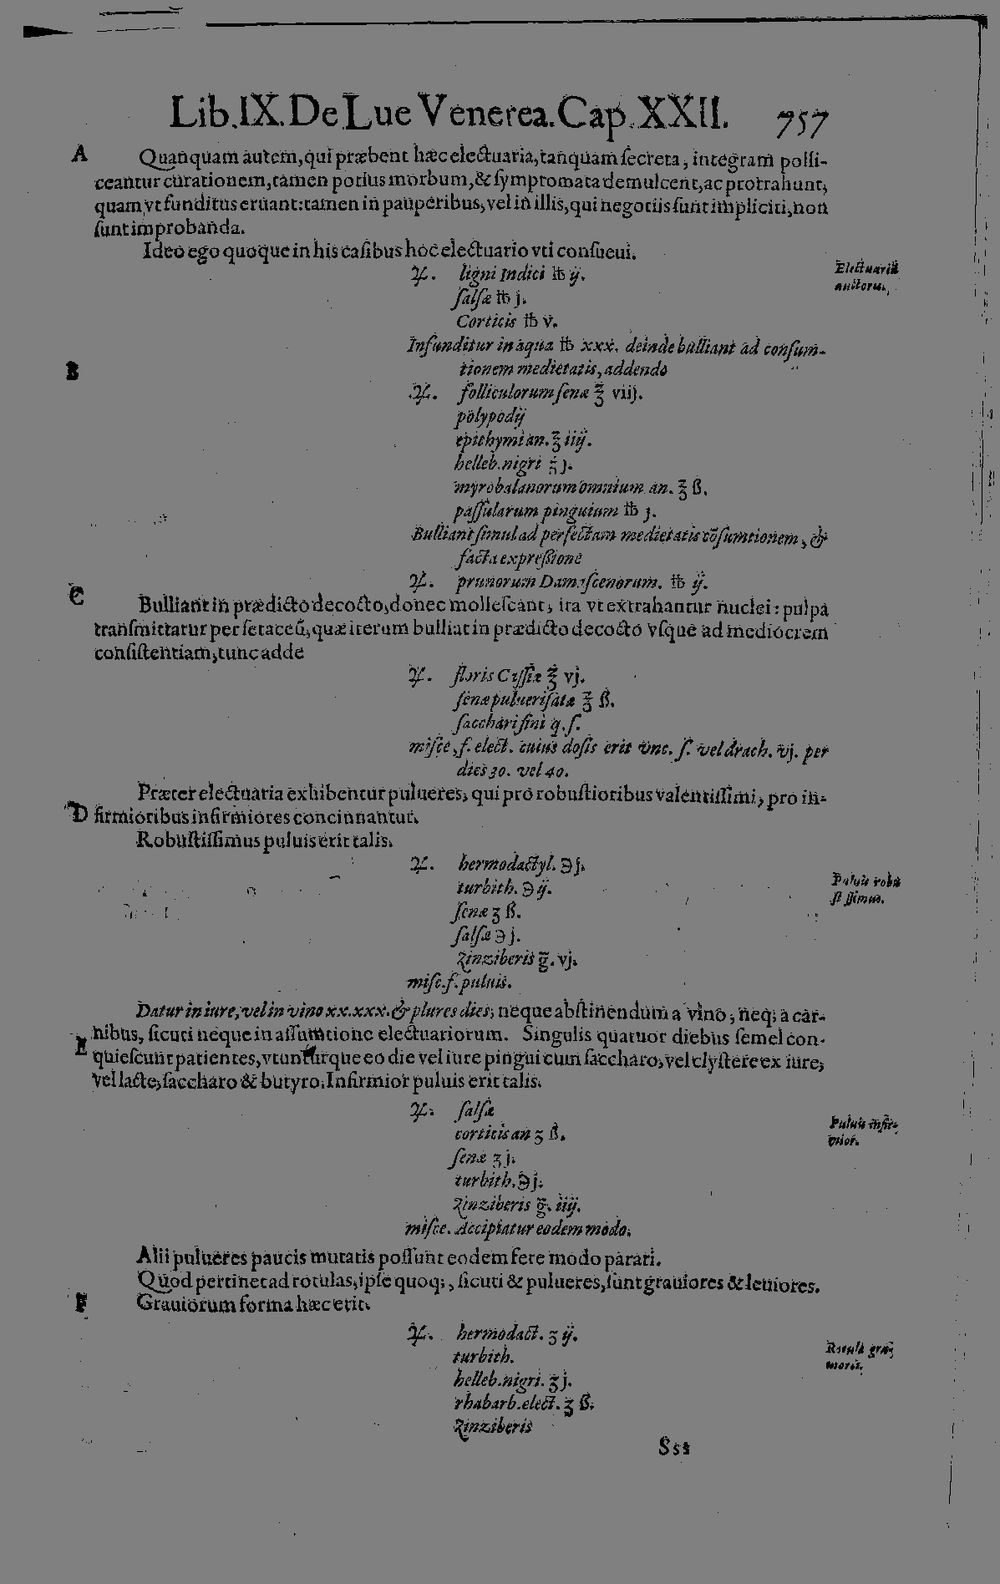 Lib. IX. De Lue Venerea. Cap. XXII. 757
A Quanquam autem, qui præbent hæc electuaria, tanquam ſecreta, integram polli-
ceantur curationem, tamen potius morbum, & ſymptomata demulcent, ac protrahunt,
quam vt funditus eruant: tamen in pauperibus, vel in illis, qui negotiis ſunt impliciti, non
ſunt improbanda.
Ideo ego quoque in his caſibus hoc electuario vti conſueui.
℞. ligni Indici ℔ ij. Electuariũ
ſalſæ ℔ j. auctoris.
Corticis ℔ v.
Infunditur in aqua ℔ xxx. deinde bulliant ad conſum-
B tionem medietatis, addendo
℞. folliculorum ſenæ ℥ viij.
polypodij
epithymi an. ℥ iiij.
helleb. nigri ℥ j.
myrobalanorum omnium an. ℥ ß.
paſſularum pinguium ℔ j.
Bulliant ſimul ad perfectam medietatis cõſumtionem, &
facta expreſsione
℞. prunorum Damaſcenorum. ℔ ij.
C Bulliant in prædicto decocto, donec molleſcant, ita vt extrahantur nuclei: pulpa
tranſmittatur per ſetaceũ, quæ iterum bulliat in prædicto decocto vſque ad mediocrem
conſiſtentiam, tunc adde
℞. floris Caſſiæ ℥ vj.
ſenæ pulueriſatæ ℥ ß.
ſacchari fini q. ſ.
miſce, f. elect. cuius doſis erit vnc. ſ. vel drach. vj. per
dies 30. vel 40.
Præter electuaria exhibentur pulueres, qui pro robuſtioribus valentiſſimi, pro in-
D firmioribus infirmiores concinnantur.
Robuſtiſſimus puluis erit talis.
℞. hermodactyl. ℈ j. Puluis robu
turbith. ℈ ij. ſtiſſimus.
ſenæ ʒ ß.
ſalſæ ℈ j.
Zinziberis g̅. vj.
miſc. f. puluis.
Datur in iure, vel in vino xx. xxx. & plures dies, neque abſtinendum a vino, neq; à car-
E nibus, ſicuti neque in aſſumtione electuariorum. Singulis quatuor diebus ſemel con-
quieſcunt patientes, vtunturque eo die vel iure pingui cum ſaccharo, vel clyſtere ex iure,
vel lacte, ſaccharo & butyro. Infirmior puluis erit talis.
℞. ſalſæ Puluis infir-
corticis an ʒ ß. mior.
ſenæ ʒ j.
turbith. ℈ j.
Zinziberis g̅. iiij.
miſce. Accipiatur eodem modo.
Alii pulueres paucis mutatis poſſunt eodem fere modo parari.
Quod pertinet ad rotulas, ipſe quoq;, ſicuti & pulueres, ſunt grauiores & leuiores.
F Grauiorum forma hæc erit.
℞. hermodact. ʒ ij. Rotulæ graui
turbith. mores.
helleb. nigri. ʒ j.
rhabarb. elect. ʒ ß.
Zinziberis
Sss